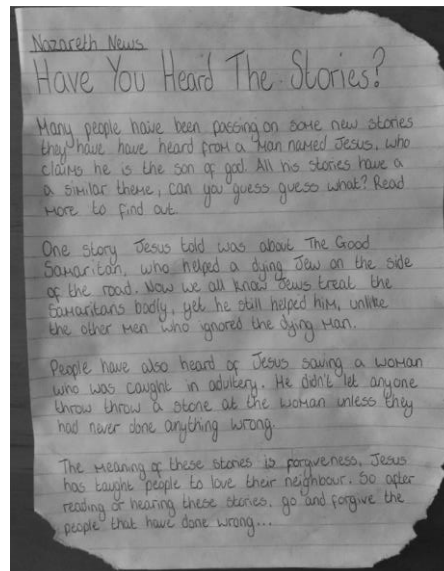 Nazareth News
Have You Heard The Stories?
Many people have been passing on some new stories
they have have heard from a man named Jesus, who
claims he is the son of god. All his stories have a
a similar theme, can you guess guess what? Read
more to find out.
One story Jesus told was about The Good
Samaritan, who helped a dying Jew on the side
of the road. Now we all know Jews treat the
Samaritans badly, yet he still helped him, unlike
the other men who ignored the dying man.
People have also heard of Jesus saving a woman
who was caught in adultery. He didn't let anyone
throw throw a stone at the woman unless they
had never done anything wrong.
The meaning of these stories is forgiveness. Jesus
has taught people to love their neighbour. So after
reading or hearing these stories, go and forgive the
people that have done wrong...